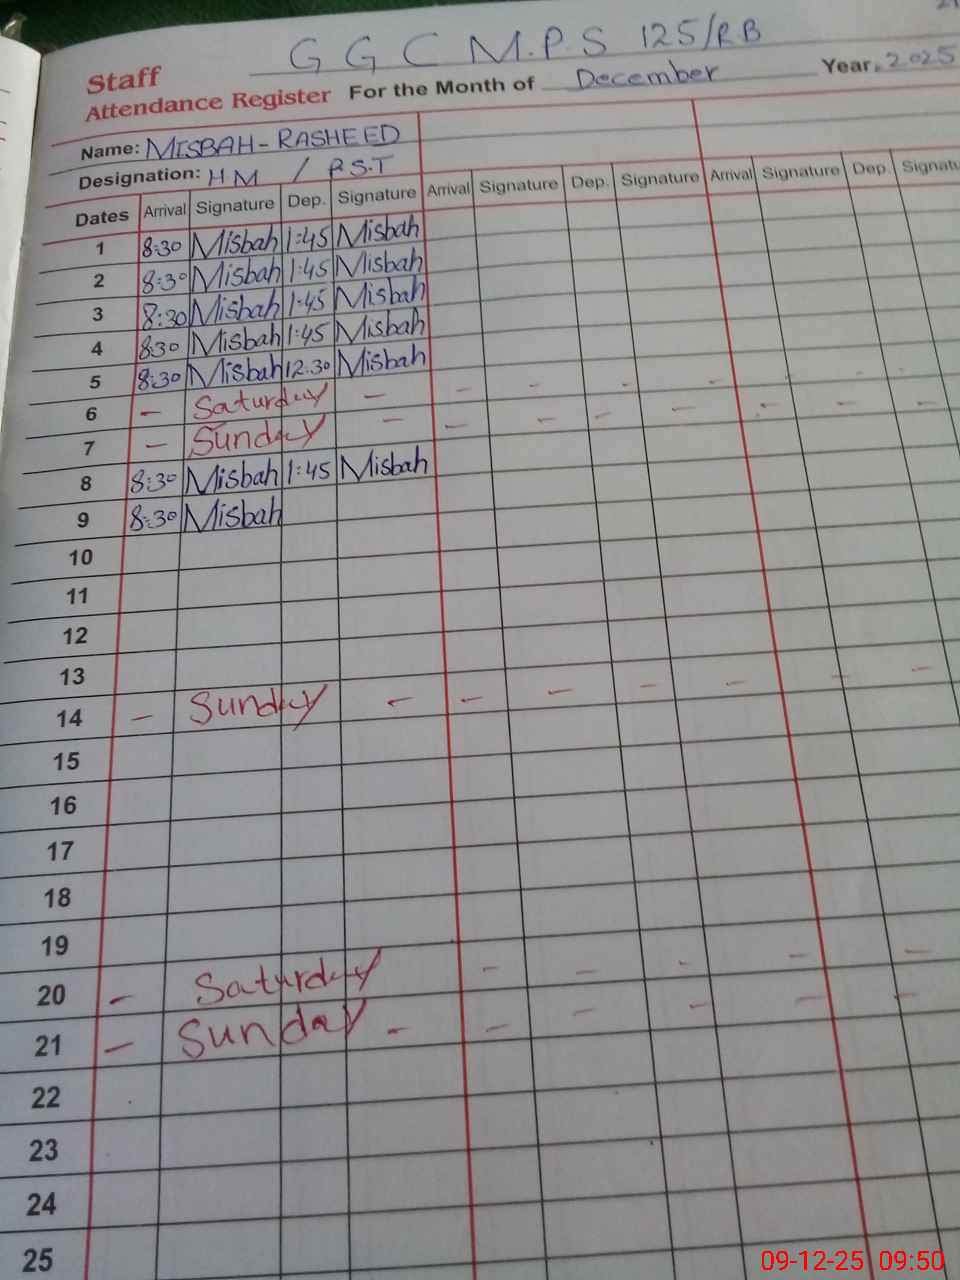 G G C M.P.S 125/R.B
Staff
Attendance Register For the Month of December Year. 2025
Name: MISBAH - RASHEED
Designation: HM / P.S.T
Dates Arrival Signature Dep. Signature Arrival Signature Dep. Signature Arrival Signature Dep. Signatu
1 8:30 Misbah 1:45 Misbah
2 8:30 Misbah 1:45 Misbah
3 8:30 Misbah 1:45 Misbah
4 830 Misbah 1:45 Misbah
5 8:30 Misbah 12.30 Misbah
6 - Saturday - - - - - - -
7 - Sunday - - - - - - - -
8 8:30 Misbah 1:45 Misbah
9 8:30 Misbah
10
11
12
13
14 - Sunday - - - - - - -
15
16
17
18
19
20 - Saturday - - - - -
21 - Sunday - - - - - -
22
23
24
25
09-12-25 09:50